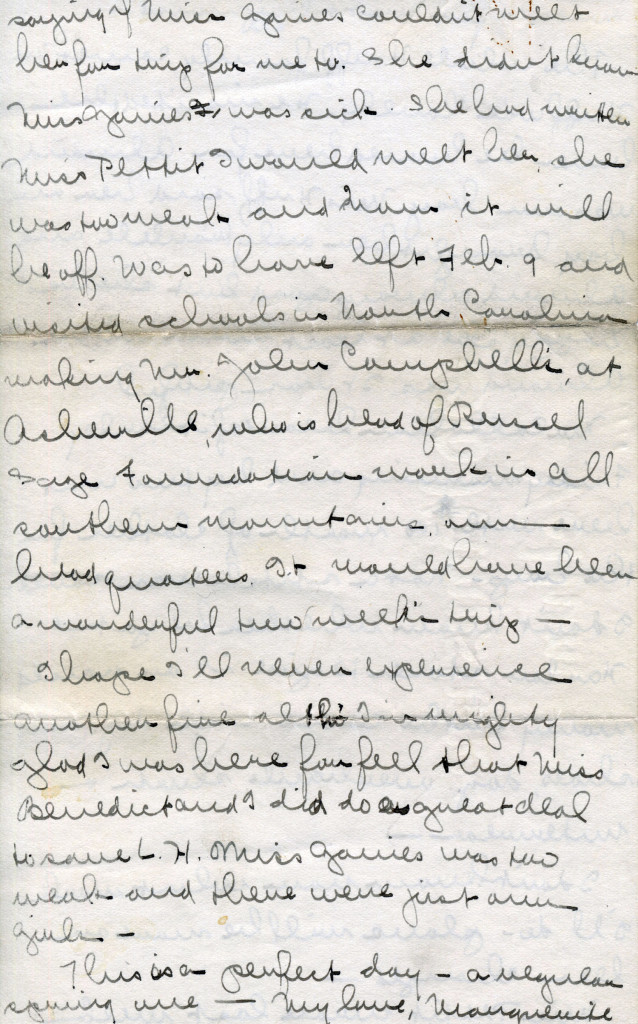 saying if Miss Gaines couldn't meet
her for trip for me to. She didn't know
Miss Gaines & I was sick. She had written
Miss Pettit I would meet her, she
was too weak and now it will
be off. Was to have left Feb. 9 and
visited schools in North Carolina
making Mr. John Campbell's, at
Asheville, who is head of Russel
Sage Foundation work in all
southern mountains, our
headquaters. It would have been
a wonderful two week's trip —
I hope I'll never experience
another fire altho' I'm mighty
glad I was here for feel that Miss
Benedict and I did do a great deal
to save L. H. Miss Gaines was too
weak and there were just our
girls —
This is a perfect day — a regular
spring one — My love, Marguerite